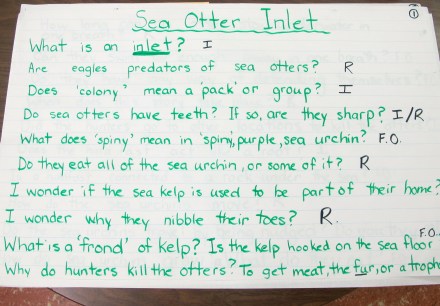 Sea Otter Inlet ①
What is an inlet? I
Are eagles predators of sea otters? R
Does 'colony' mean a 'pack' or group? I
Do sea otters have teeth? If so, are they sharp? I/R
What does 'spiny' mean in 'spiny, purple, sea urchin? F.O.
Do they eat all of the sea urchin, or some of it? R
I wonder if the sea kelp is used to be part of their home?
I wonder why they nibble their toes? R.
F.O.
What is a 'frond' of kelp? Is the kelp hooked on the sea floor
Why do hunters kill the otters? To get meat, the fur, or a troph